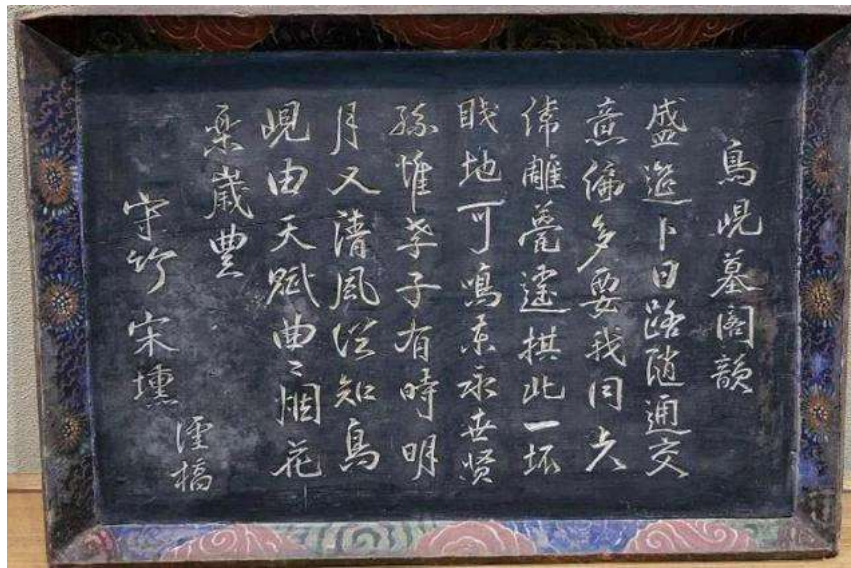 鳥峴墓閣韻
盛筵卜日路隨通交
意偏多要我同矣
偉雕甍違拱此一坏
賤地可鳴東永世贤
孫惟孝子有時明
月又清風從知鳥
峴由天賦曲〻烟花
樂歲豊
守竹 宋壎
謹稿